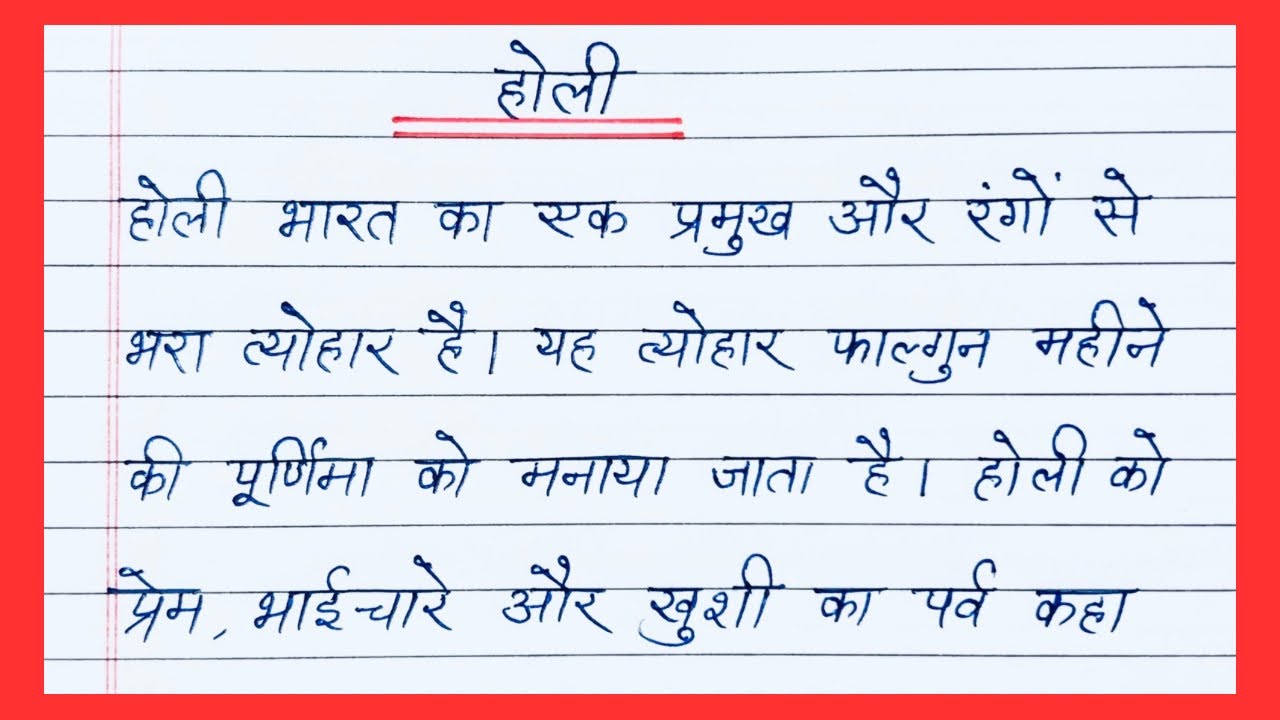 होली
होली भारत का एक प्रमुख और रंगों से
भरा त्योहार है। यह त्योहार फाल्गुन महीने
की पूर्णिमा को मनाया जाता है। होली को
प्रेम, भाईचारे और खुशी का पर्व कहा